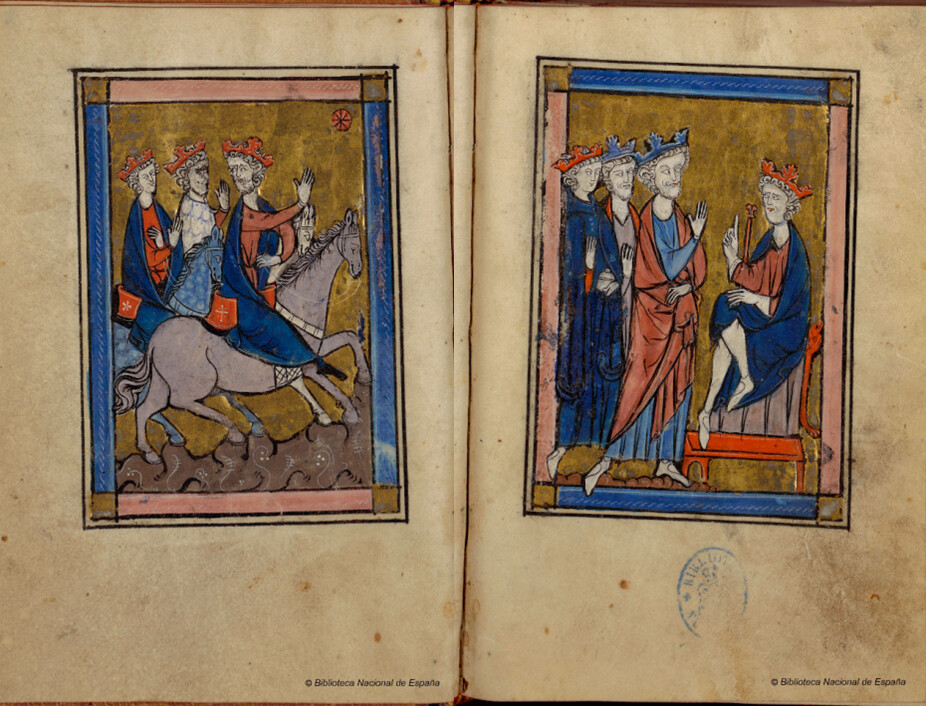 © Biblioteca Nacional de España
© Biblioteca Nacional de España